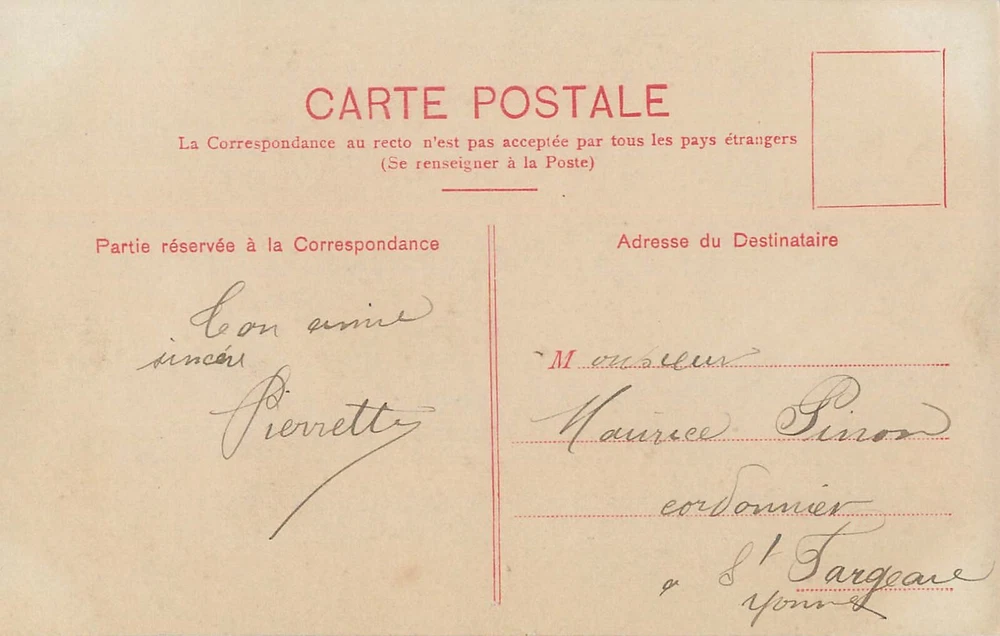 CARTE POSTALE
La Correspondance au recto n'est pas acceptée par tous les pays étrangers
(Se renseigner à la Poste)
Partie réservée à la Correspondance
Ton amie
sincère
Pierrette
Adresse du Destinataire
Monsieur
Maurice Pinon
cordonnier
a St Fargeau
Yonne